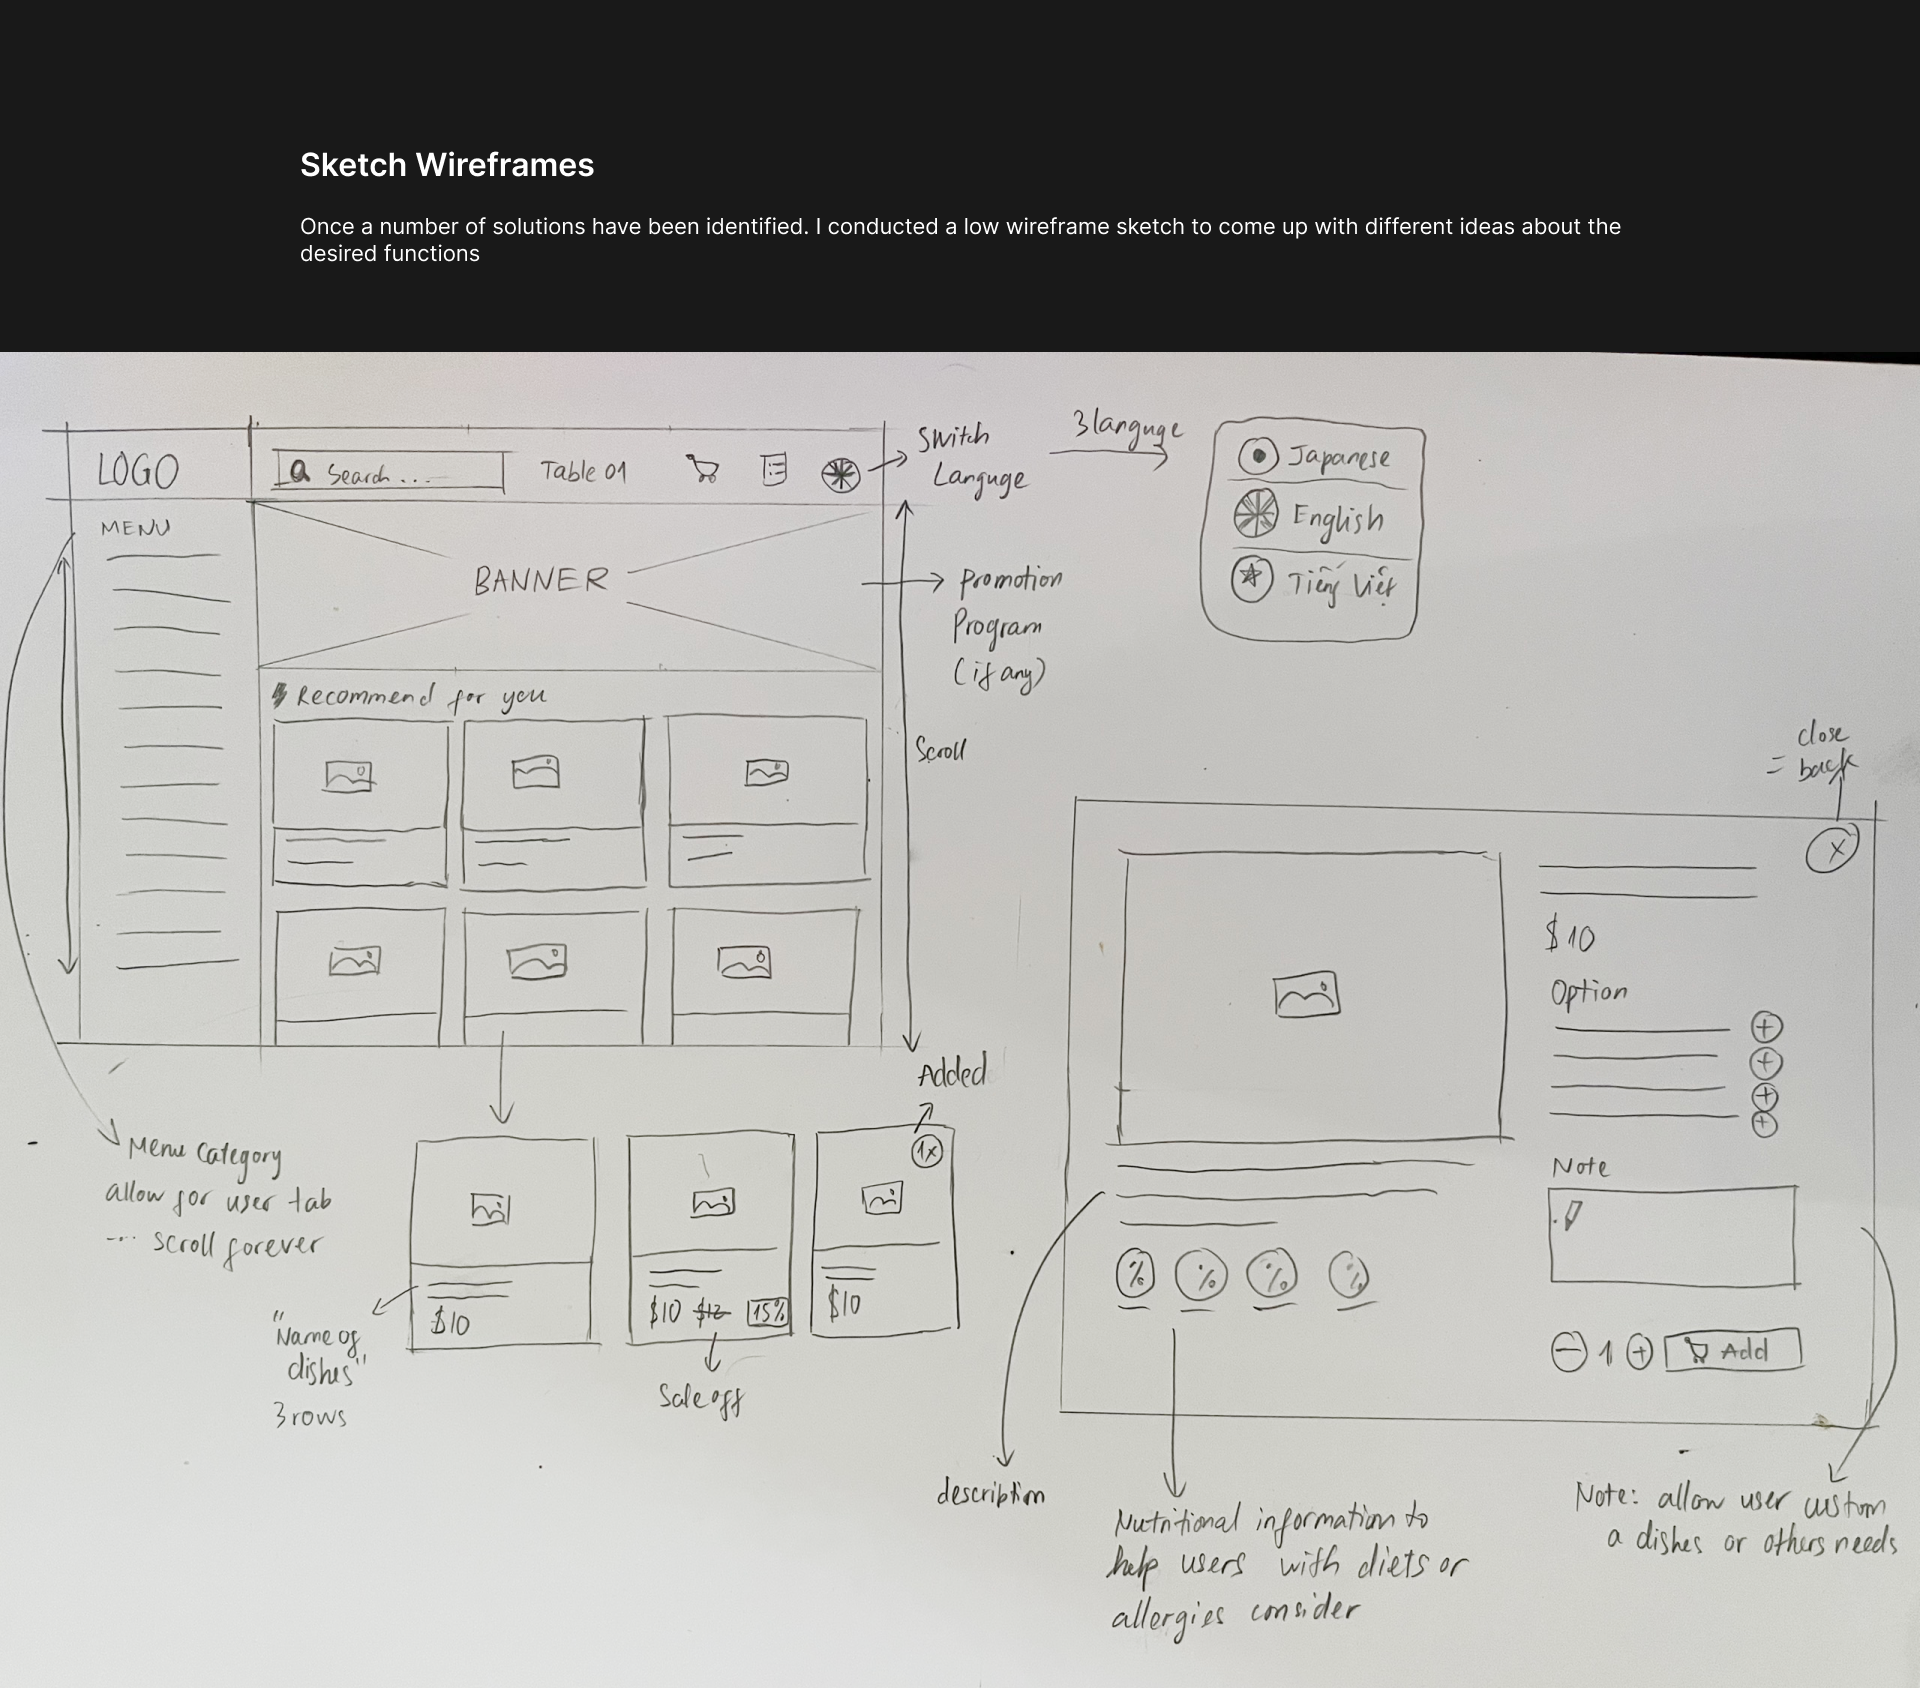 Sketch Wireframes
Once a number of solutions have been identified. I conducted a low wireframe sketch to come up with different ideas about the
desired functions
LOGO
Search...
Table 01
Switch
Languge
3 languge
Japanese
English
Tiếng Việt
MENU
BANNER
Promotion
Program
(if any)
Recommend for you
Scroll
Added
Menu Category
allow for user tab
... scroll forever
"Name of
dishes"
3 rows
$10
$10 $12 15%
Sale off
1x
$10
close
= back
X
$10
Option
+
+
+
+
Note
% % % %
- 1 + Add
description
Nutritional information to
help users with diets or
allergies consider
Note: allow user custom
a dishes or others needs